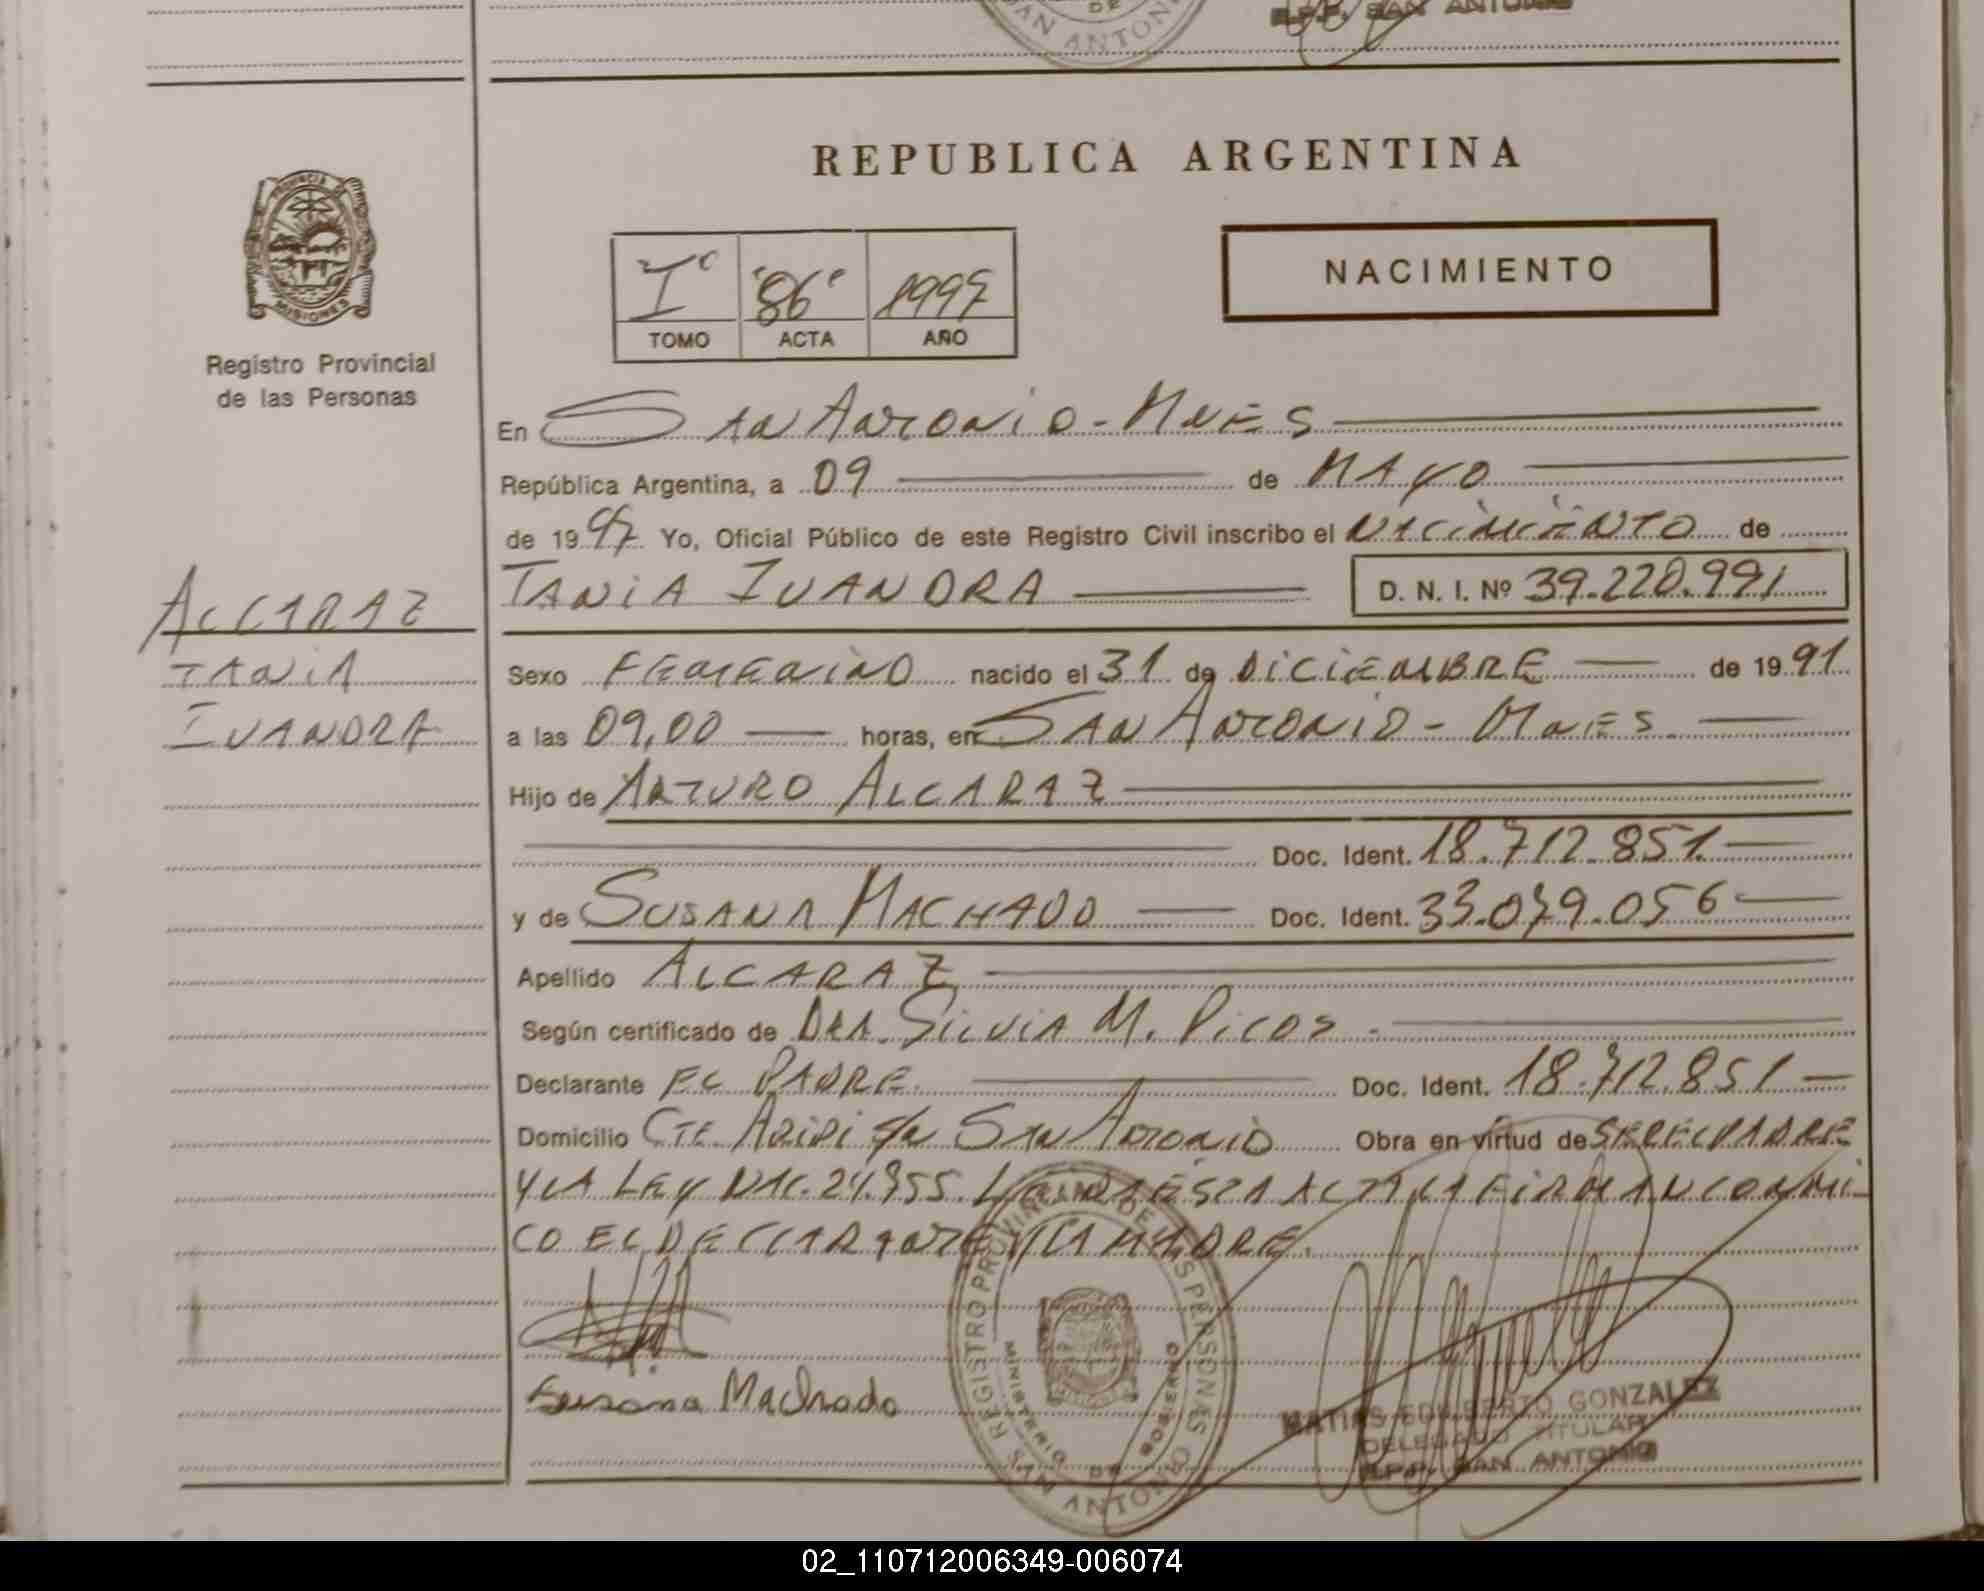 DE
SAN ANTONIO
R.P.P. SAN ANTONIO
PROVINCIA DE
MISIONES
Registro Provincial
de las Personas
REPUBLICA ARGENTINA
NACIMIENTO
Iº "86" 1997
TOMO ACTA AÑO
En SAN ANTONIO - MNES
República Argentina, a 09 de MAYO
de 1997 Yo, Oficial Público de este Registro Civil inscribo el NACIMIENTO de
TANIA IVANDRA D. N. I. Nº 39.220.991
ALCARAZ
TANIA
IVANDRA
Sexo FEMENINO nacido el 31 de DICIEMBRE de 1991
a las 09,00 horas, en SAN ANTONIO - MNES
Hijo de ARTURO ALCARAZ
Doc. Ident. 18.712.851
y de SUSANA MACHADO Doc. Ident. 33.079.056
Apellido ALCARAZ
Según certificado de DRA. SILVIA M. PICOS
Declarante EL PADRE Doc. Ident. 18.712.851
Domicilio CTE. ARIPI S/N SAN ANTONIO Obra en virtud de SER EL PADRE
Y LA LEY NAC. 24.955. LEIDA ESTA ACTA LA FIRMAN CONMI-
GO EL DECLARANTE Y LA MADRE.
Susana Machado
REGISTRO PROVINCIAL DE LAS PERSONAS
MINISTERIO DE GOBIERNO
SAN ANTONIO
MATIAS EDILBERTO GONZALEZ
DELEGADO TITULAR
R.P.P. SAN ANTONIO
02_110712006349-006074